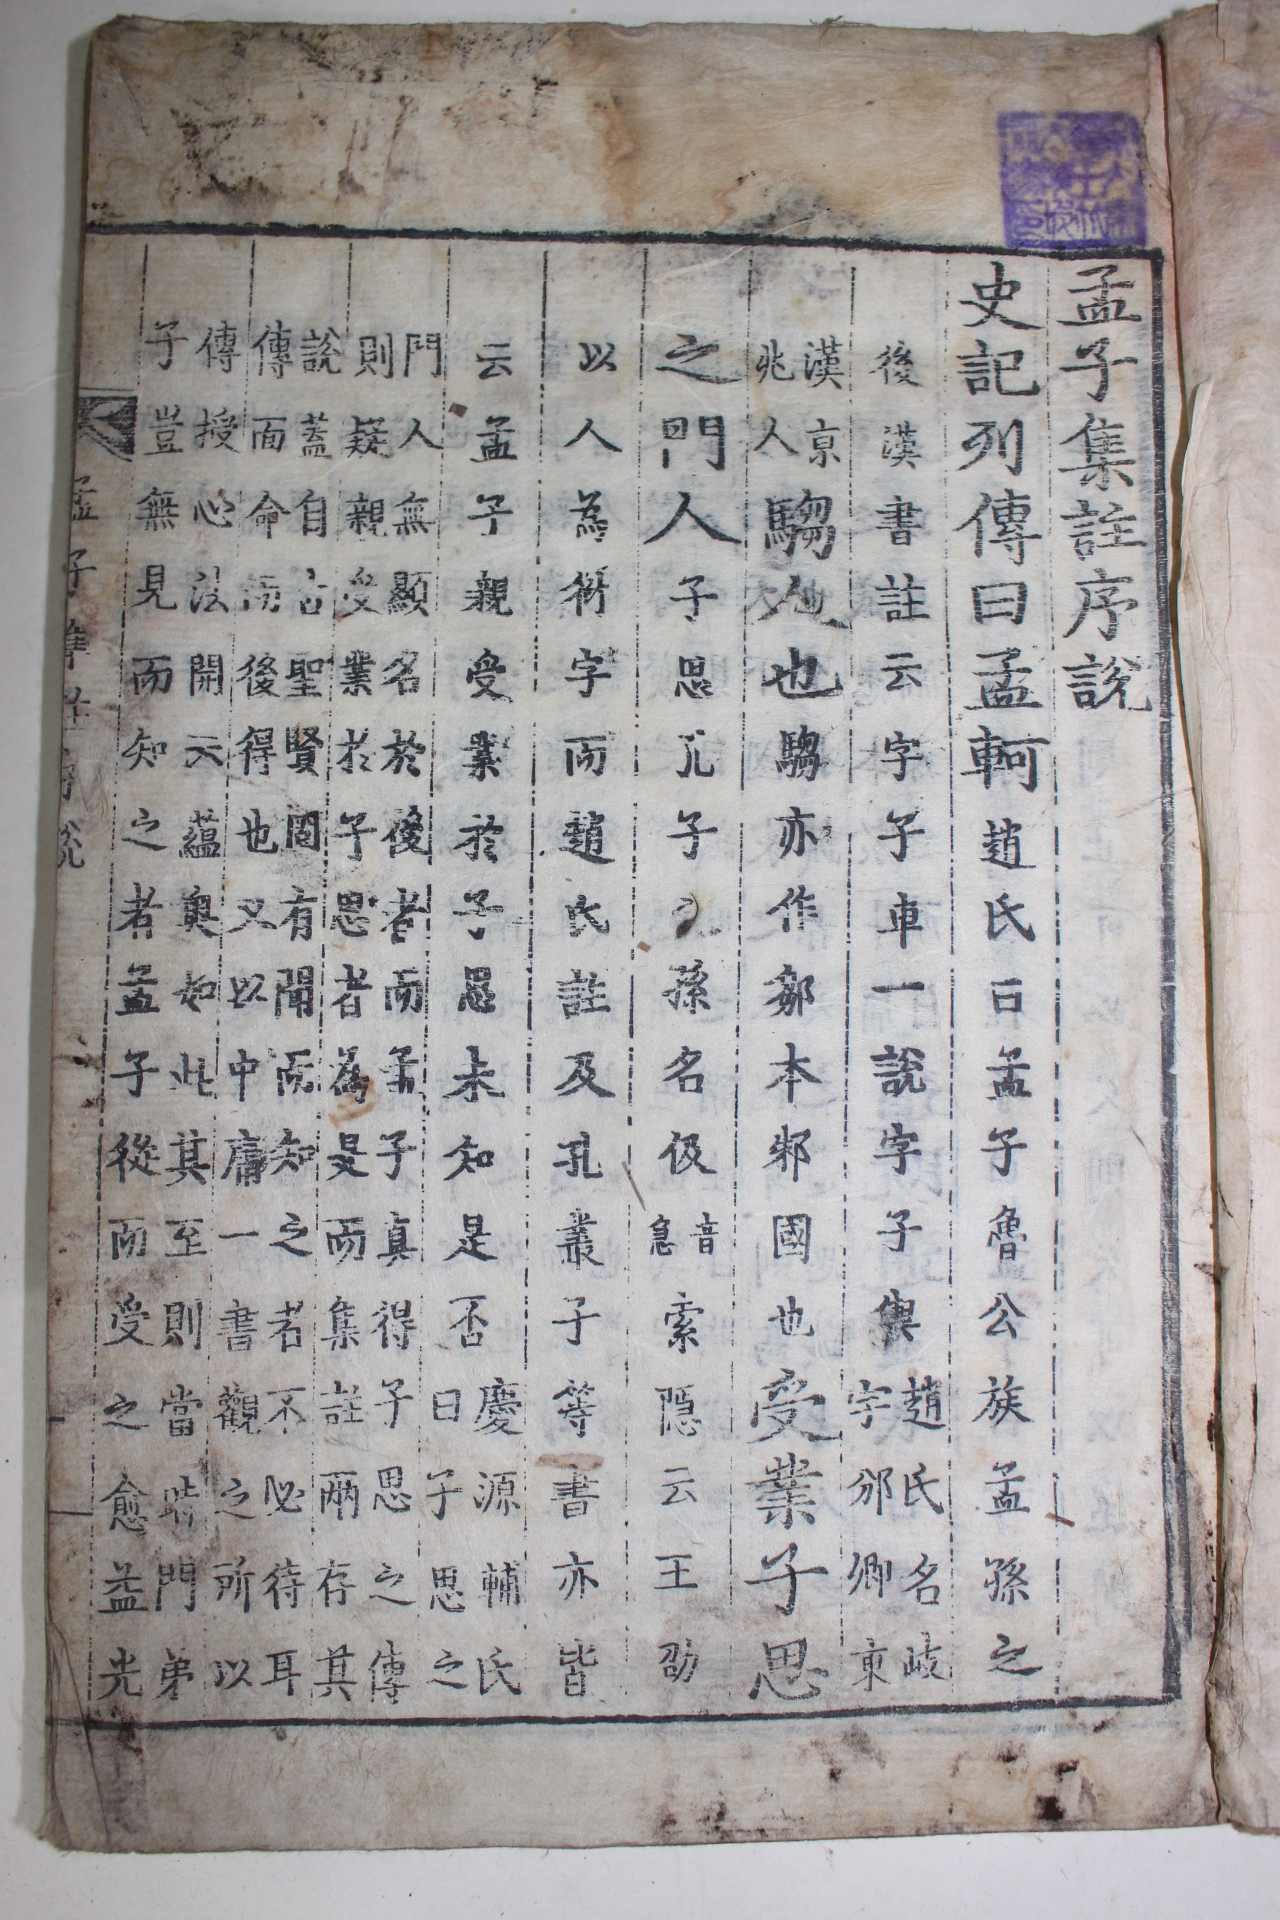 孟子集註序說
史記列傳曰孟軻趙氏曰孟子魯公族孟孫之
後漢書註云字子車一說字子輿趙氏名岐字邠卿京
漢京兆人騶人也騶亦作鄒本邾國也受業子思
之門人子思孔子之孫名伋音急索隱云王劭
以人為衍字而趙氏註及孔叢子等書亦皆
云孟子親受業於子思未知是否慶源輔氏曰子思之
門人無顯名於後者而孟子真得子思之傳則疑親受業於子思者為是而集註兩存其
說蓋自古聖賢固有聞而知之者不必待耳傳面命而後得也又以中庸一書觀之所以
傳授心法開示蘊奧如此其至則當時門弟子豈無見而知之者孟子從而受之愈益光
孟子集註序說